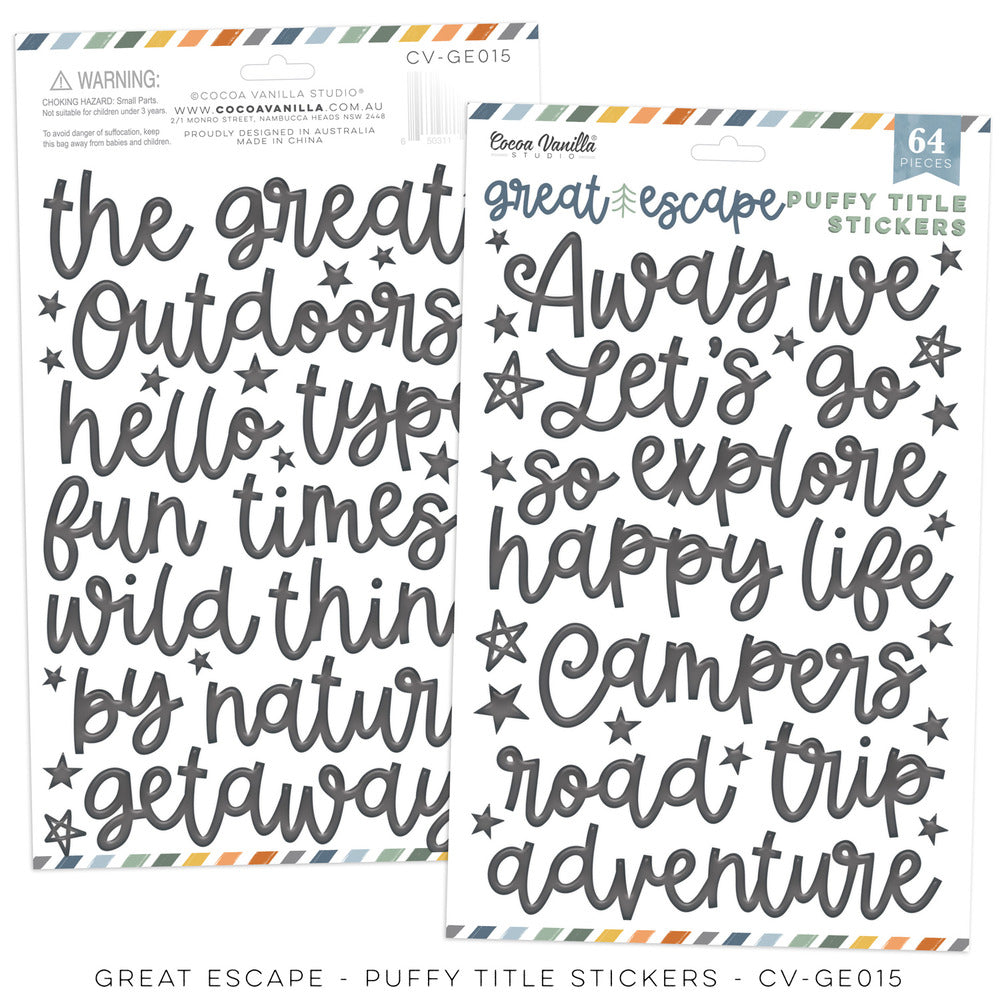 CV-GE015
WARNING:
CHOKING HAZARD: Small Parts.
Not suitable for children under 3 years.
To avoid danger of suffocation, keep
this bag away from babies and children.
©COCOA VANILLA STUDIO®
WWW.COCOAVANILLA.COM.AU
2/1 MONRO STREET, NAMBUCCA HEADS NSW 2448
PROUDLY DESIGNED IN AUSTRALIA
MADE IN CHINA
the great
Outdoors
hello type
fun times
wild thin
by natur
getaway
Cocoa Vanilla®
STUDIO
64
PIECES
great escape
PUFFY TITLE
STICKERS
Away we
Let's go
so explore
happy life
Campers
road trip
adventure
GREAT ESCAPE - PUFFY TITLE STICKERS - CV-GE015